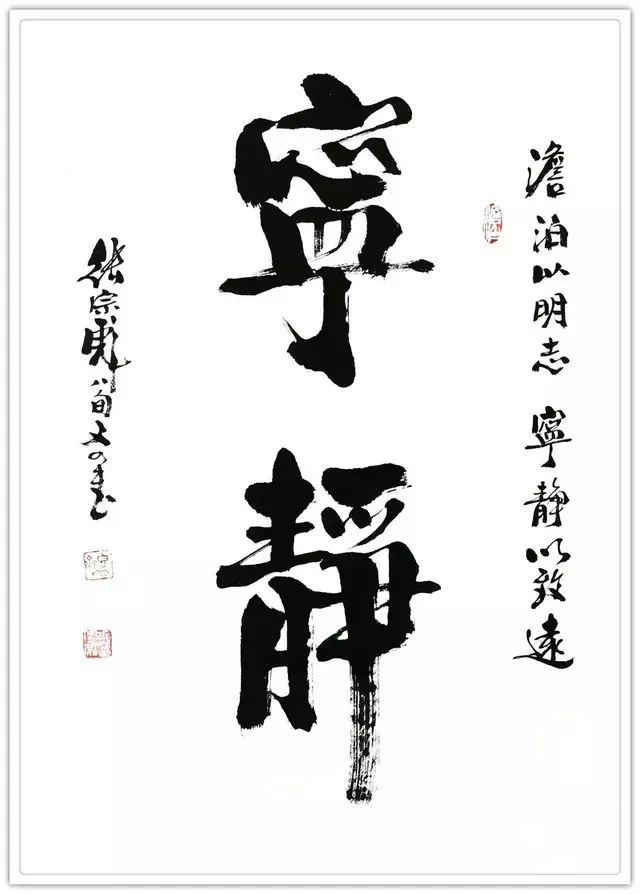 澹泊以明志 寧靜以致遠
寧靜
張宗彪八旬又書